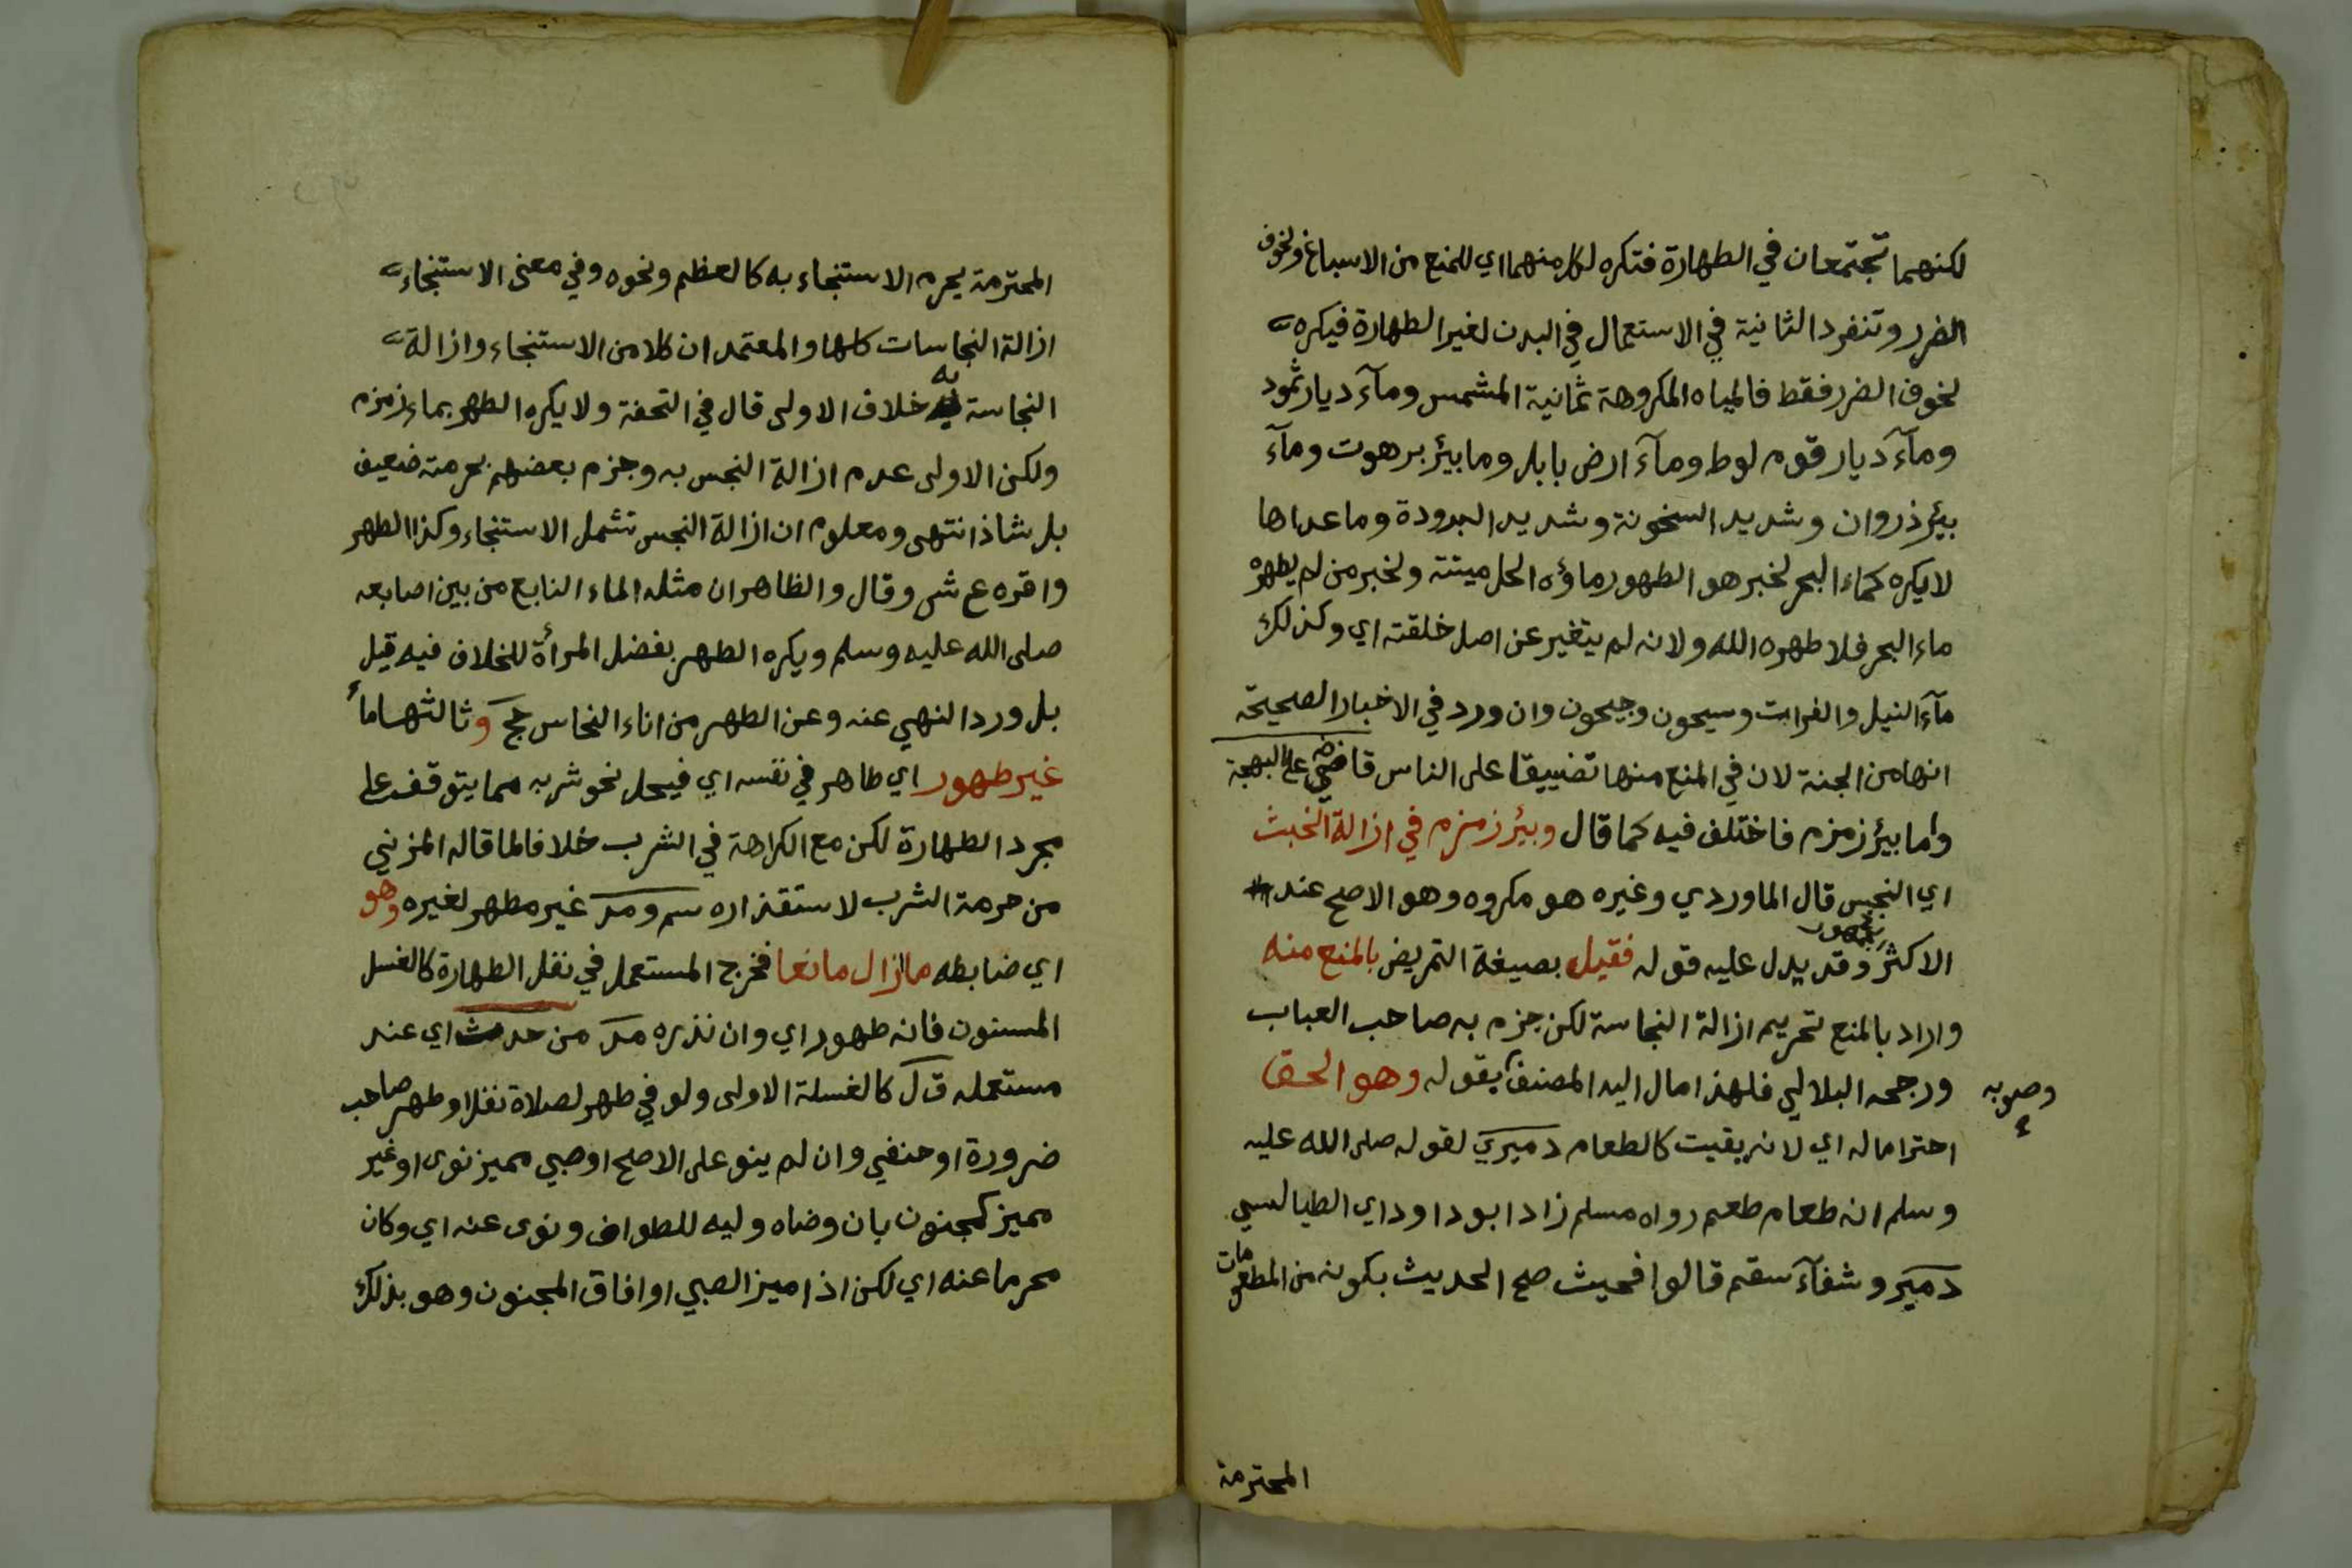 لكنهما تجتمعان في الطهارة فتكره لكل منهما اي للمنع من الاسباغ ولخوف
الضرر وتنفرد الثانية في الاستعمال في البدن لغير الطهارة فيكره
لخوف الضرر فقط فالمياه المكروهة ثمانية المشمس ومآء ديار ثمود
ومآء ديار قوم لوط ومآء ارض بابل وما بيئر برهوت ومآء
بيئر ذروان وشديد السخونة وشديد البرودة وما عداها
لا يكره كماء البحر لخبر هو الطهور ماؤه الحل ميتته ولخبر من لم يطهره
ماء البحر فلا طهره الله ولانه لم يتغير عن اصل خلقته اي وكذلك
مآء النيل والفرات وسيحون وجيحون وان ورد في الاخبار الصحيحة
انها من الجنة لان في المنع منها تضييقا على الناس قاضي على البهجة
واما بيئر زمزم فاختلف فيه كما قال وبيئر زمزم في ازالة الخبث
اي النجس قال الماوردي وغيره هو مكروه وهو الاصح عند
الاكثر وقد يدل عليه قوله فقيل بصيغة التمريض بالمنع منه
واراد بالمنع تحريم ازالة النجاسة لكن جزم به صاحب العباب
ورجحه البلالي فلهذا مال اليه المصنف بقوله وهو الحق
وصوبه
احتراما له اي لانه يقيت كالطعام دميري لقوله صلى الله عليه
وسلم انه طعام طعم رواه مسلم زاد ابو داود اي الطيالسي
دمير وشفآء سقم قالوا فحيث صح الحديث بكونه من المطعومات
المحترمة
المحترمة يحرم الاستنجاء به كالعظم ونحوه وفي معنى الاستنجاء
ازالة النجاسات كلها والمعتمد ان كلا من الاستنجاء وازالة
النجاسة به خلاف الاولى قال في التحفة ولا يكره الطهر بماء زمزم
ولكن الاولى عدم ازالة النجس به وجزم بعضهم بحرمته ضعيف
بل شاذ انتهى ومعلوم ان ازالة النجس تشمل الاستنجاء وكذا الطهر
واقره ع ش وقال والظاهر ان مثله الماء النابع من بين اصابعه
صلى الله عليه وسلم ويكره الطهر بفضل المرأة للخلاف فيه قيل
بل ورد النهي عنه وعن الطهر من اناء النحاس حج وثالثها ماء
غير طهور اي طاهر في نفسه اي فيحل نحو شربه مما يتوقف على
مجرد الطهارة لكن مع الكراهة في الشرب خلافا لما قاله المزني
من حرمة الشرب لاستقذاره سم ومر غير مطهر لغيره وهو
اي ضابطه ما ازال مانعا فخرج المستعمل في نفل الطهارة كالغسل
المسنون فانه طهور اي وان نذره مر من حدث اي عند
مستعمله ق ل كالغسلة الاولى ولو في طهر لصلاة نفل او طهر صاحب
ضرورة او حنفي وان لم ينو على الاصح او صبي مميز نوى او غير
مميز كمجنون بان وضاه وليه للطواف ونوى عنه اي وكان
محرما عنه اي لكن اذا ميز الصبي او افاق المجنون وهو بذلك